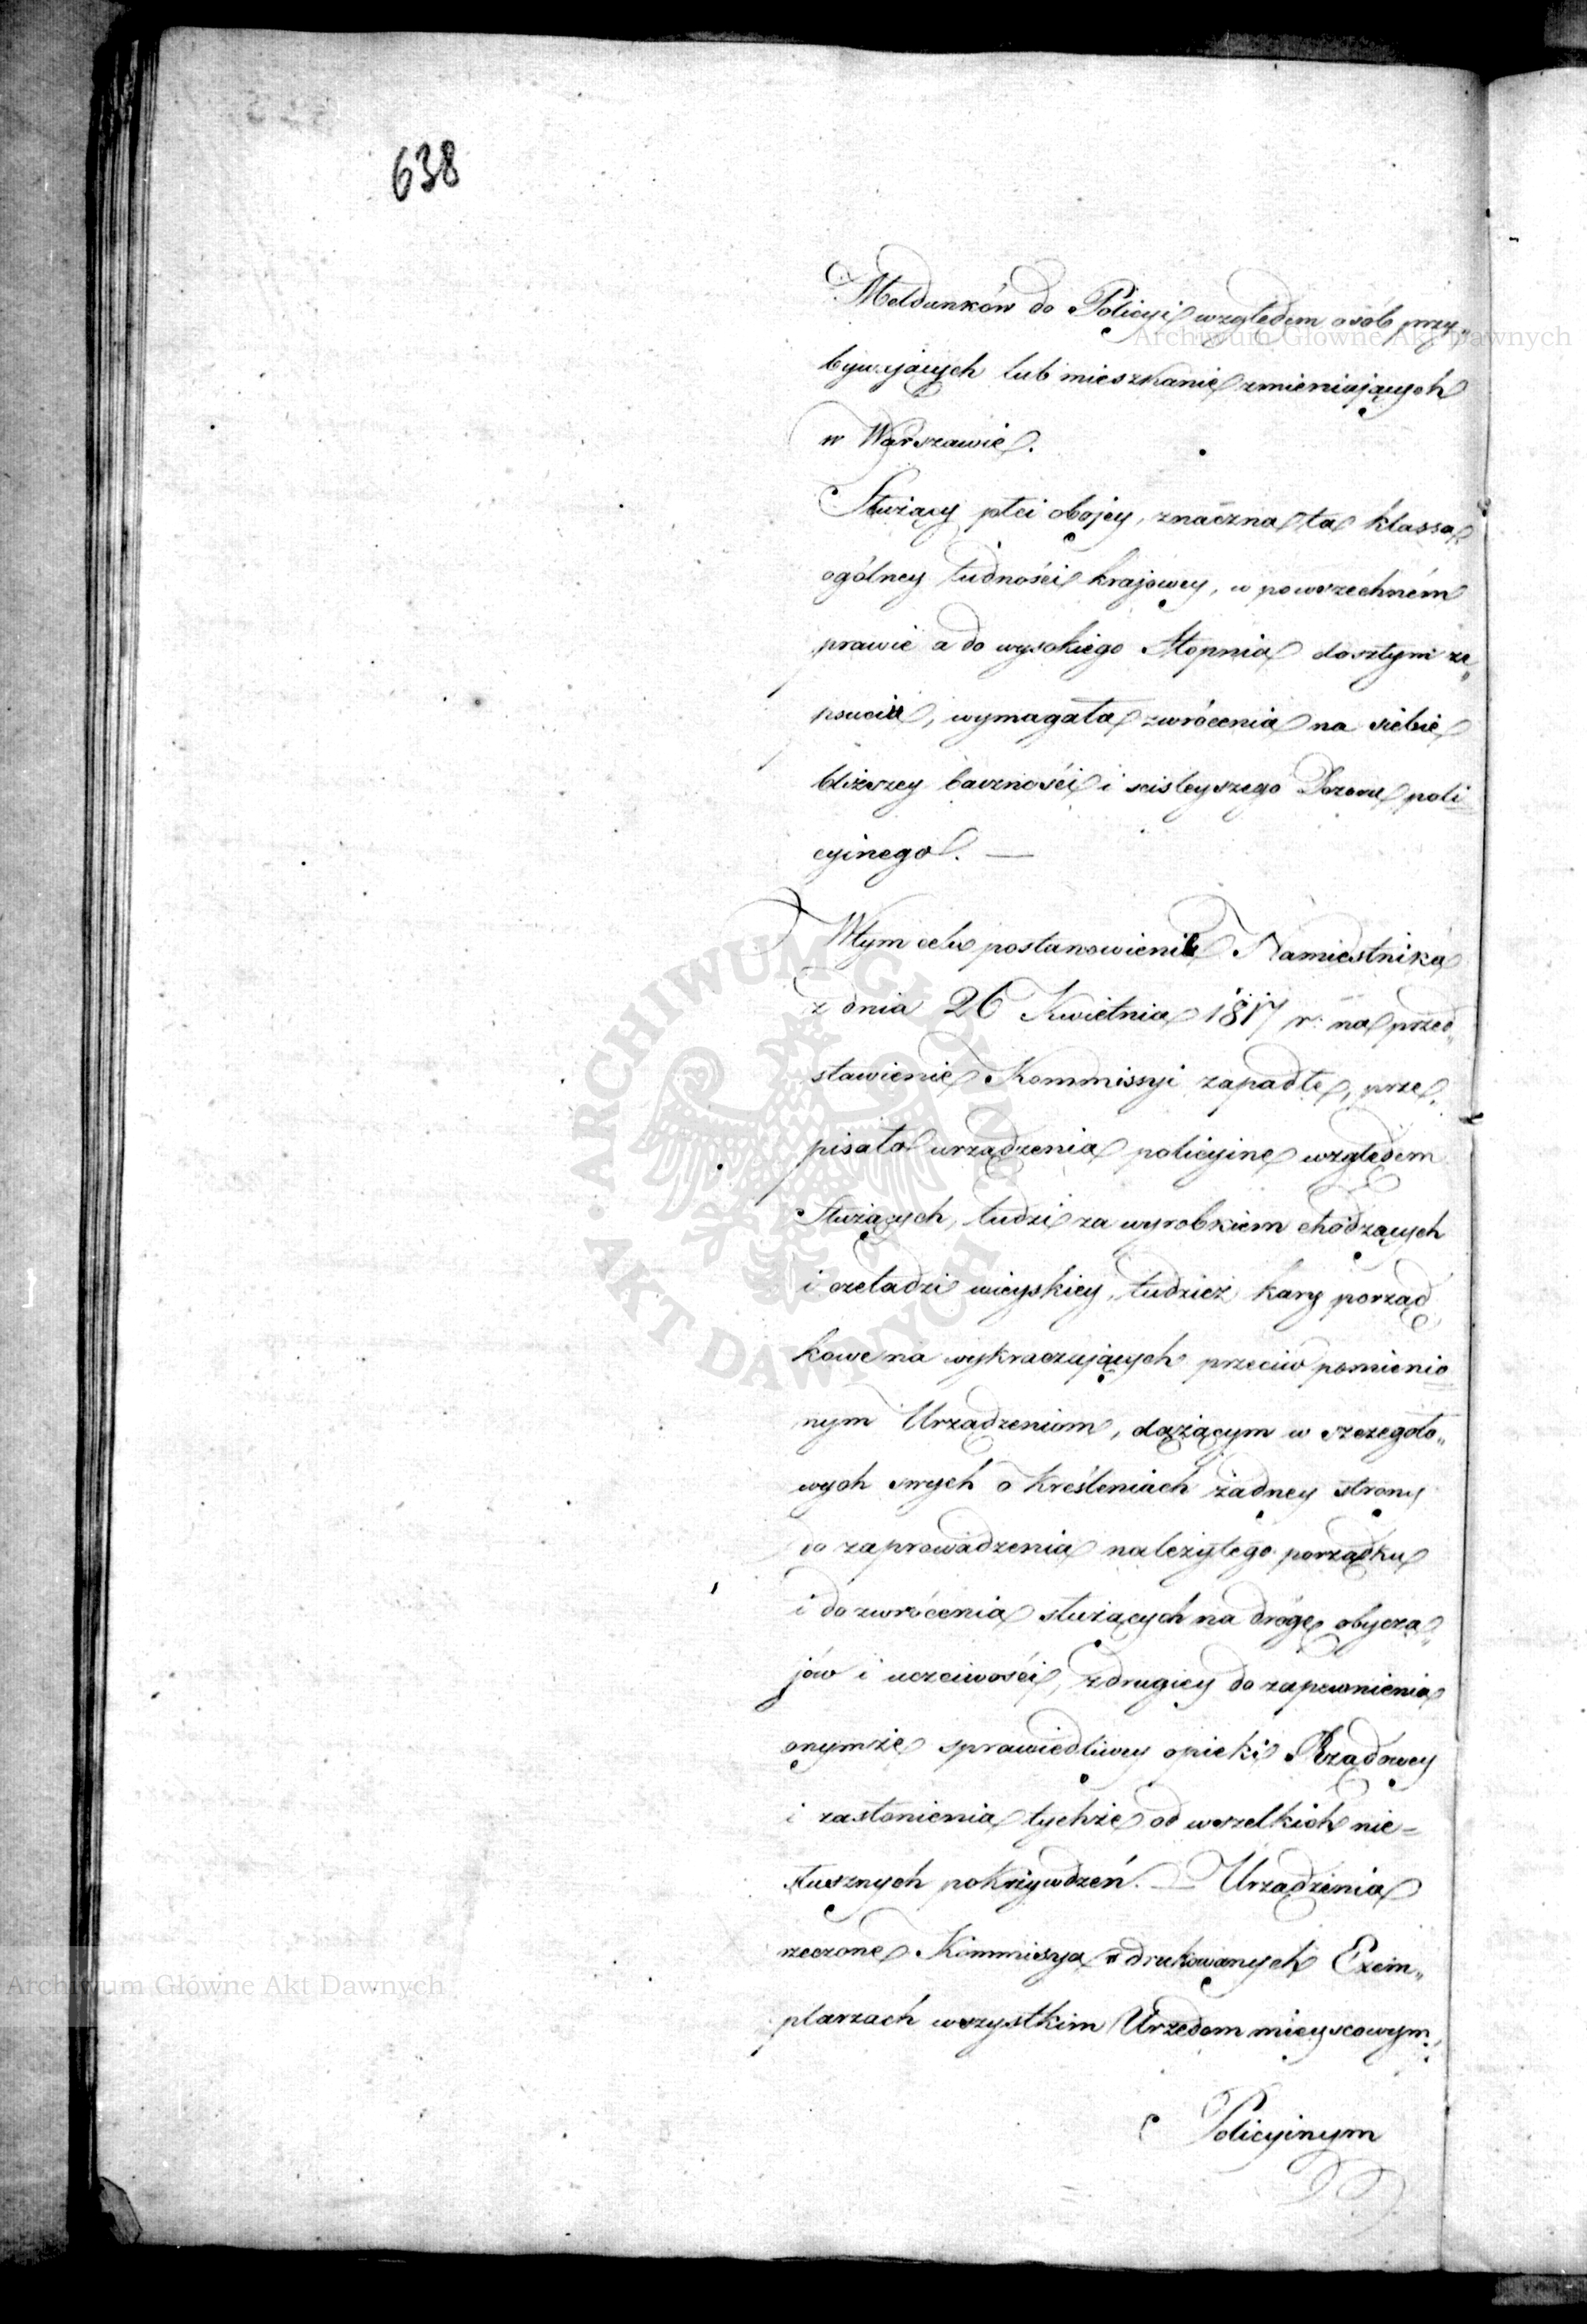 638
Meldunków do Policyi względem osób przy„
bywających lub mieszkanie zmieniających
w Warszawie.
Służący płci obojey, znaczna ta klassa
ogólney ludności krajowey, w powszechném
prawie a do wysokiego Stopnia doszłym ze„
psucie, wymagała zwrócenia na siebie
bliższey baczności i scisleyszego Dozoru poli
cyinego. —
W tym celu postanowienie Namiestnika
z dnia 26 Kwietnia 1817 r: na przed„
stawienie Kommissyi zapadłe, prze„
pisało urządzenia policyine względem
Służących, ludzi za wyrobkiem chodzących
i czeladzi wieyskiey, tudzież kary porząd„
kowe na wykraczających przeciw pomienio
nym Urządzeniom, dążącym w szczegóło„
wych swych określeniach żadney strony
do zaprowadzenia należytego porządku
i do zwrócenia służących na drogę obycza„
jów i uczciwości, z drugiey do zapewnienia
onymże sprawiedliwey opieki Rządowey
i zasłonienia tychże od wszelkich nie=
słusznych pokrzywdzeń. — Urządzenia
rzeczone Kommissya w drukowanych Exem„
plarzach wszystkim Urzędom mieyscowym
Policyinym
Archiwum Główne Akt Dawnych
Archiwum Główne Akt Dawnych
ARCHIWUM GŁÓWNE AKT DAWNYCH